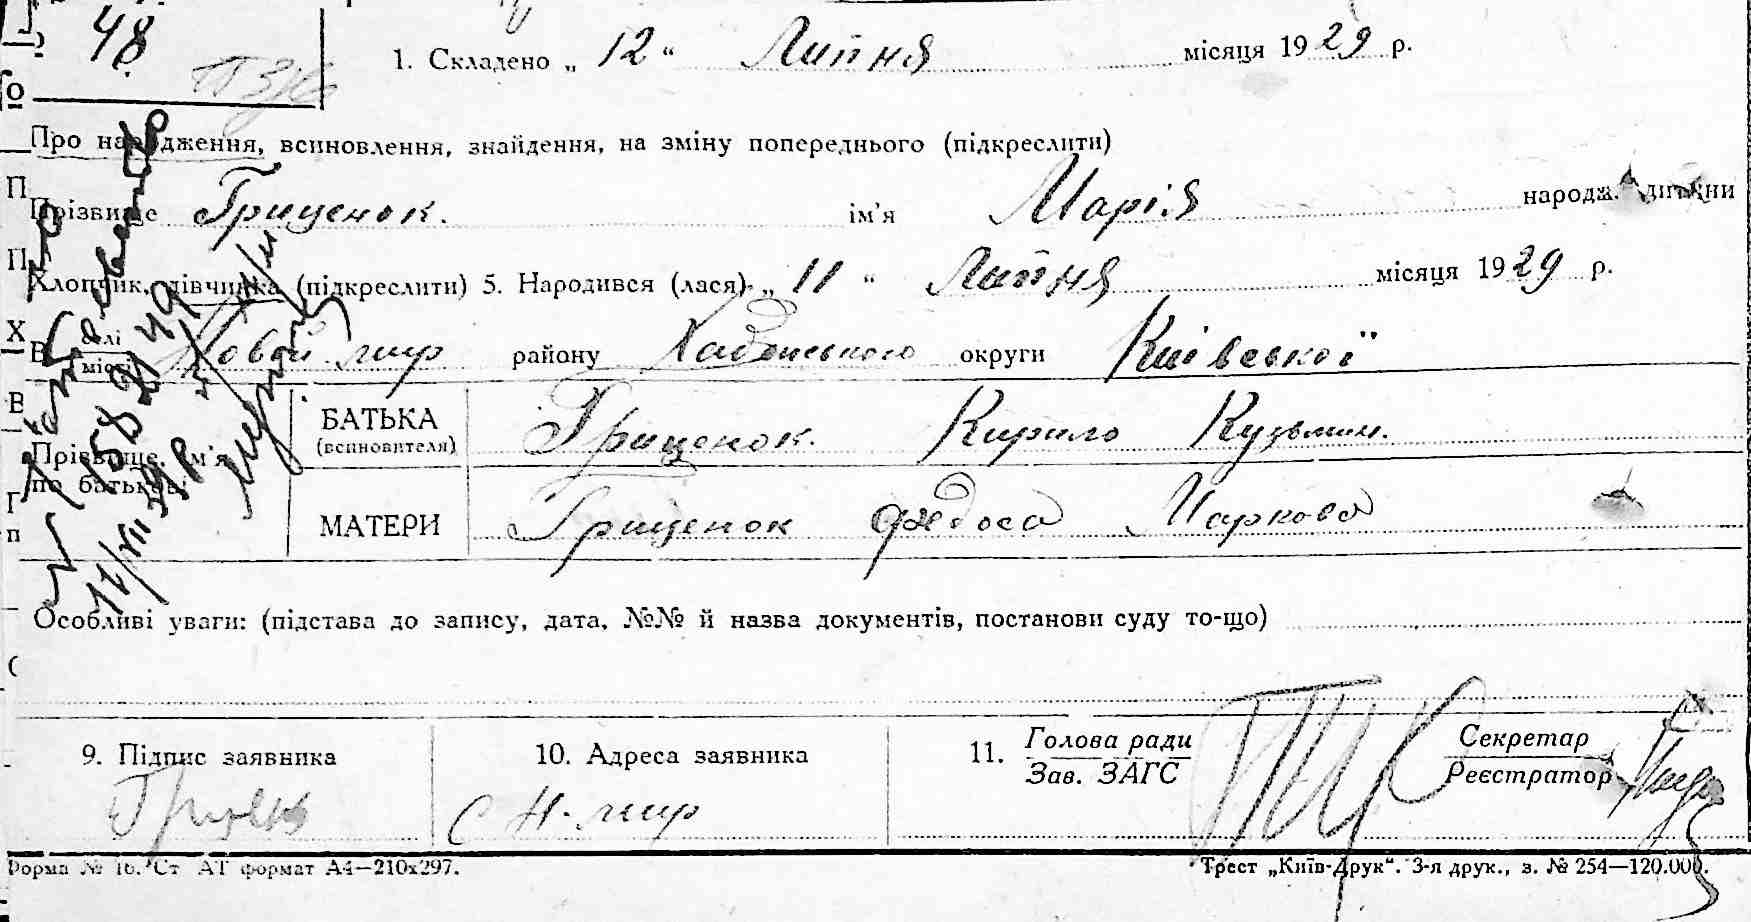 48
1. Складено „ 12 “ Липня місяця 1929 р.
Про народження, всиновлення, знайдення, на зміну попереднього (підкреслити)
Прізвище Гриценок. ім'я Марія народж. дитини
Хлопчик, дівчинка (підкреслити) 5. Народився (лася) „ 11 “ Липня місяця 1929 р.
В селі Новой мир району округи Київської
місті
Прізвище, ім'я по батькові
БАТЬКА Гриценок. Кирило Кузьмин.
(всиновителя)
МАТЕРИ Гриценок Федоса Маркова
Особливі уваги: (підстава до запису, дата, №№ й назва документів, постанови суду то-що)
9. Підпис заявника 10. Адреса заявника 11. Голова ради Секретар
Зав. ЗАГС Реєстратор
с Н. мир
Форма № 16. Ст АТ формат А4—210х297. Трест „Київ-Друк“. 3-я друк., з. № 254—120.000.